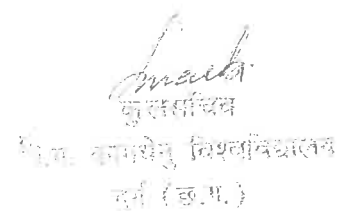 कुलसचिव
कामधेनु विश्वविद्यालय
दुर्ग (छ.ग.)